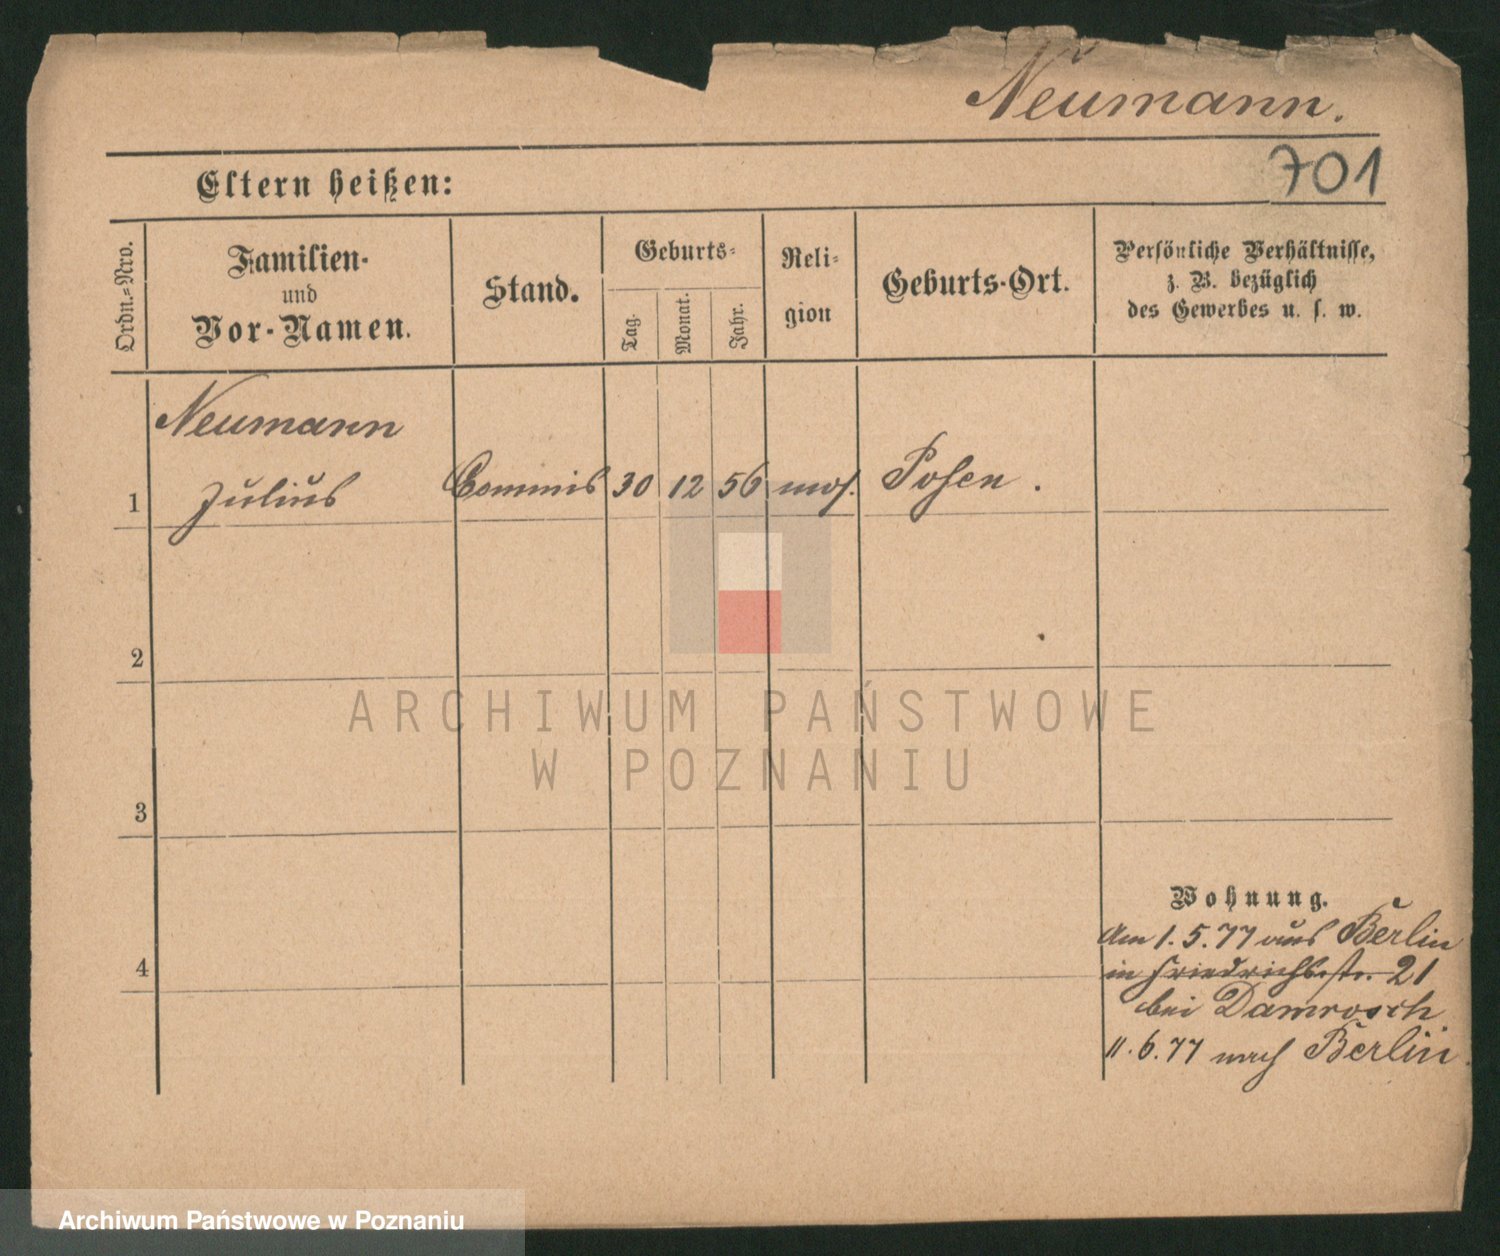 Neumann.
701
Eltern heißen:
Ordn.-Nro.
Familien-
und
Vor-Namen.
Stand.
Geburts-
Tag.
Monat.
Jahr.
Reli-
gion
Geburts-Ort.
Persönliche Verhältnisse,
z. B. bezüglich
des Gewerbes u. s. w.
Neumann
1 Julius Commis 30 12 56 mos. Posen.
2
3
4
Wohnung.
Am 1.5.77 aus Berlin
in Friedrichsstr. 21
bei Damrosch
11.6.77 nach Berlin.
ARCHIWUM PAŃSTWOWE
W POZNANIU
Archiwum Państwowe w Poznaniu